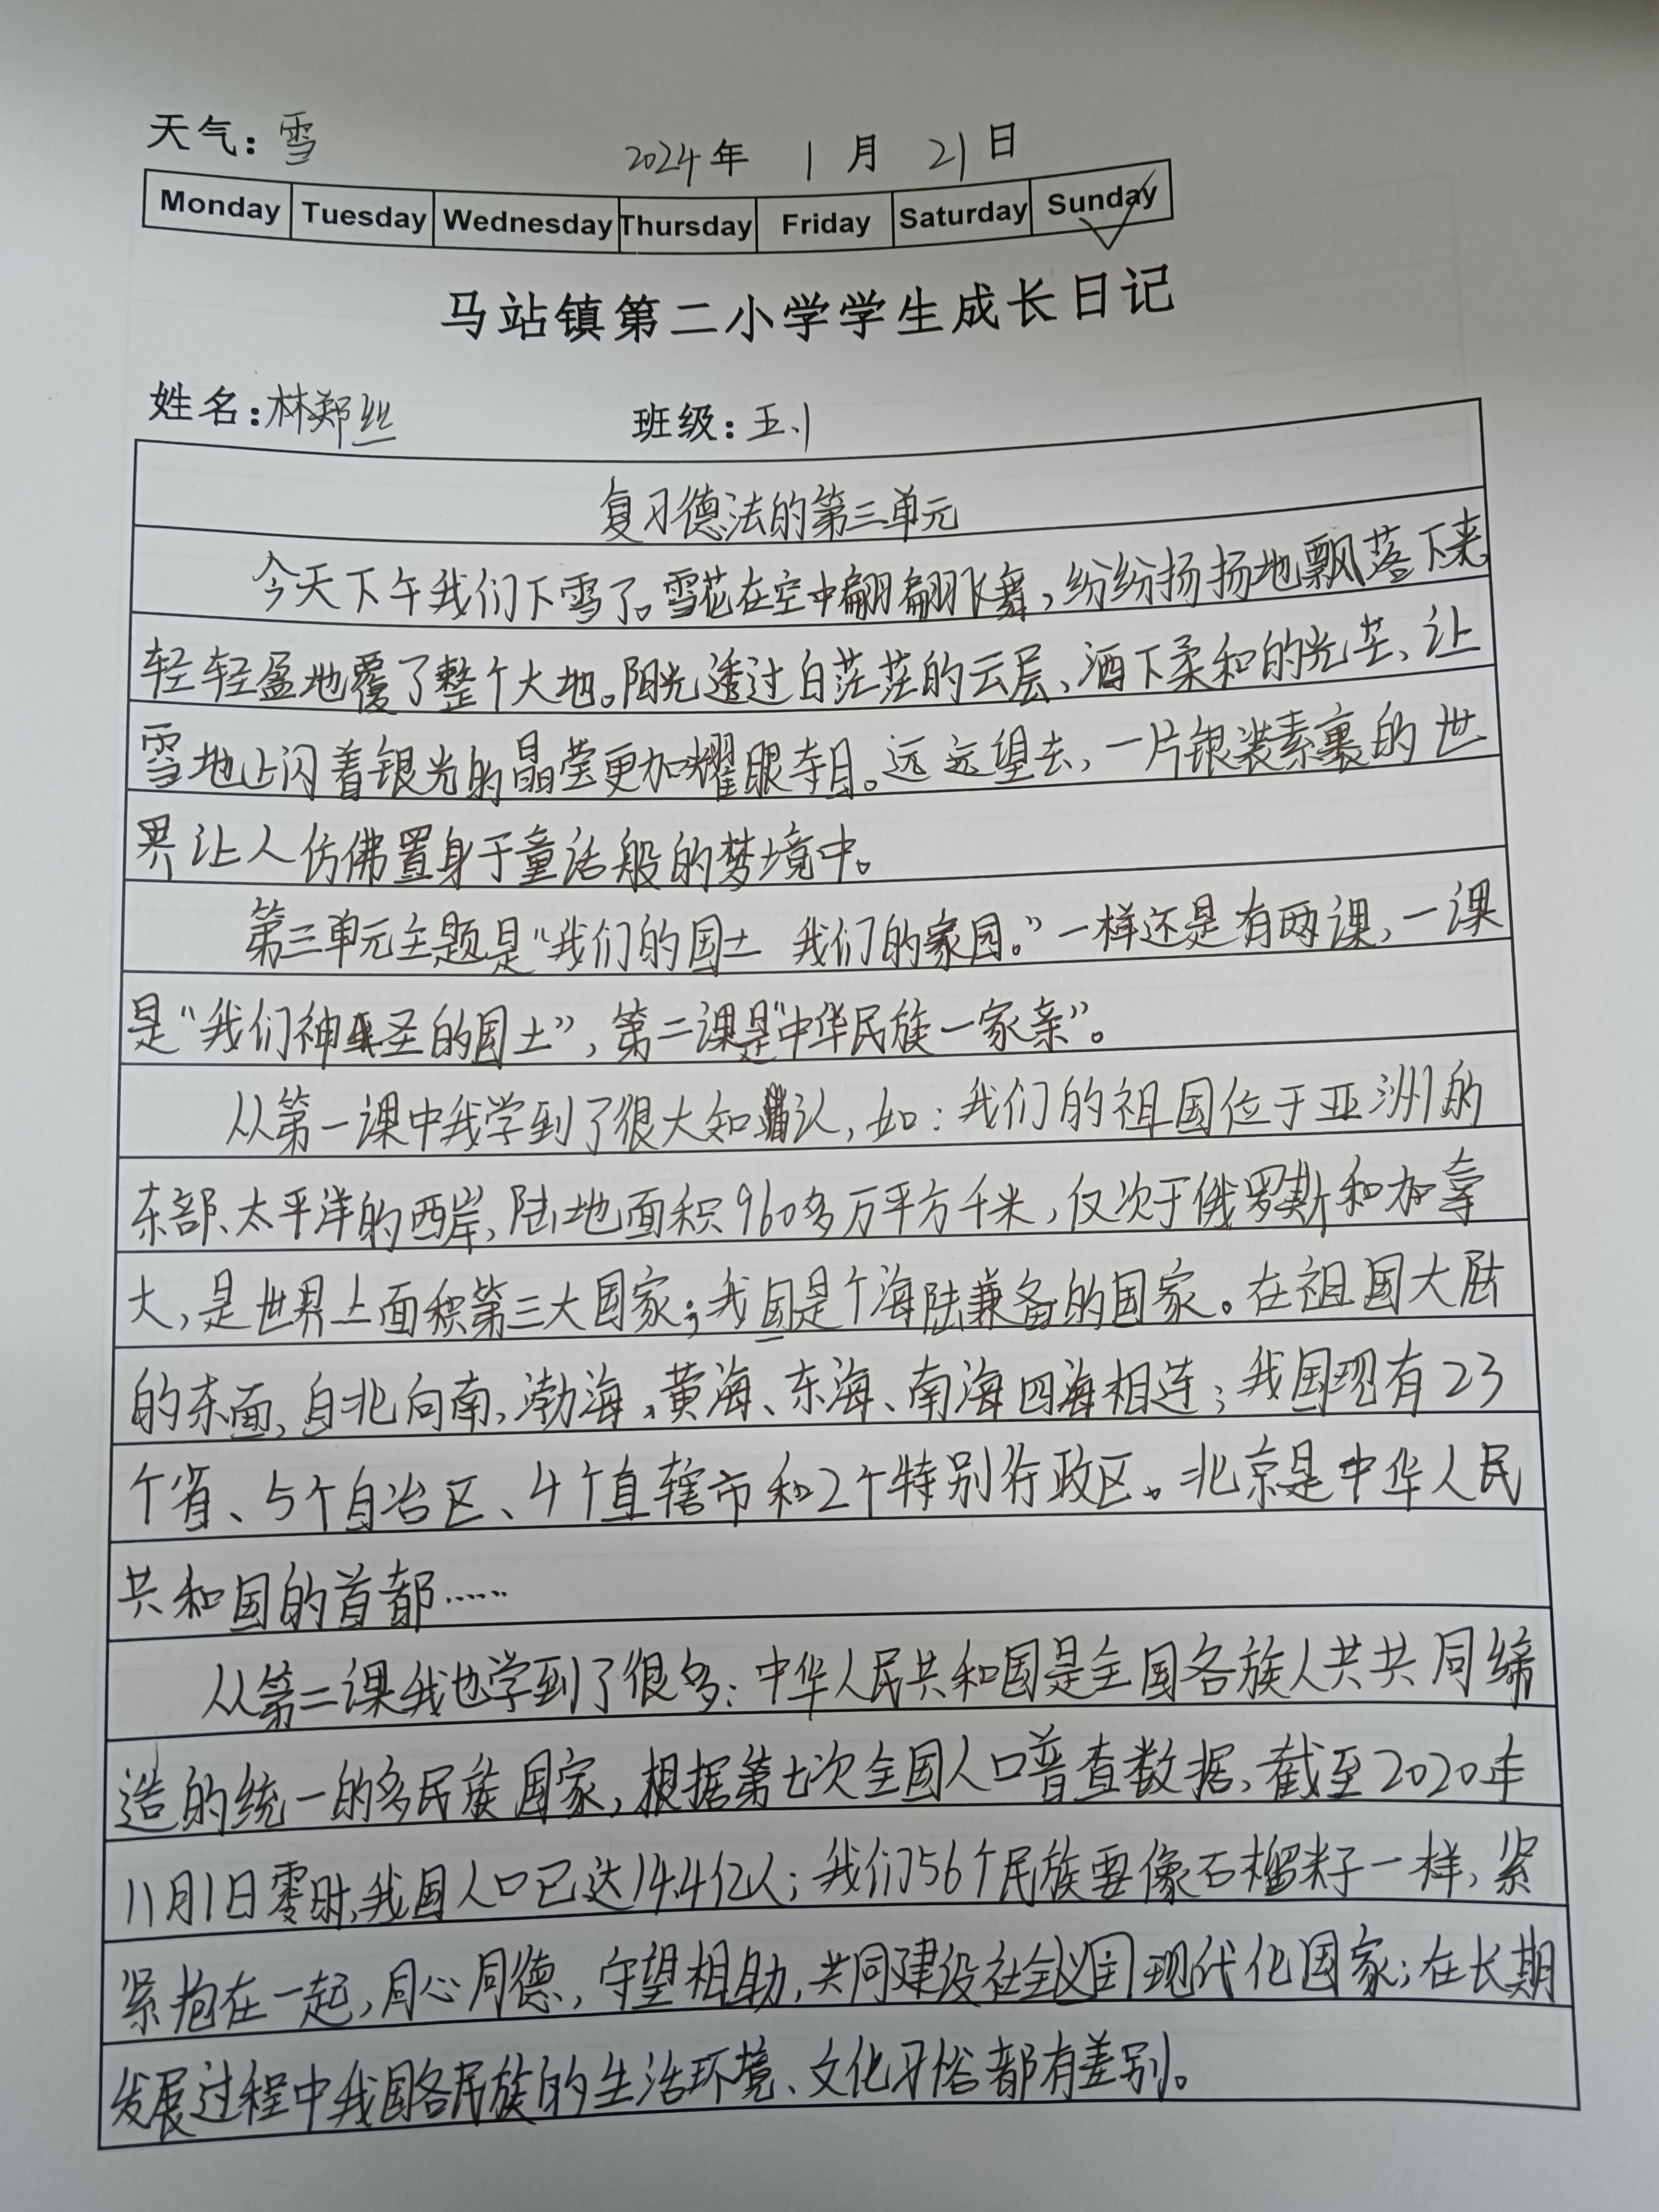 天气：雪 2024年 1月 21日
Monday Tuesday Wednesday Thursday Friday Saturday Sunday
马站镇第二小学学生成长日记
姓名：林郑丝 班级：五.1
复习德法的第三单元
今天下午我们下雪了。雪花在空中翩翩飞舞，纷纷扬扬地飘落下来，
轻轻盈地覆了整个大地。阳光透过白茫茫的云层、洒下柔和的光芒、让
雪地上闪着银光的晶莹更加耀眼夺目。远远望去，一片银装素裹的世
界让人仿佛置身于童话般的梦境中。
第三单元主题是“我们的国土 我们的家园。”一样还是有两课，一课
是“我们神圣的国土”，第二课是“中华民族一家亲”。
从第一课中我学到了很大知认，如：我们的祖国位于亚洲的
东部、太平洋的西岸，陆地面积960多万平方千米，仅次于俄罗斯和加拿
大，是世界上面积第三大国家；我国是个海陆兼备的国家。在祖国大陆
的东面，自北向南，渤海，黄海、东海、南海四海相连；我国现有23
个省、5个自治区、4个直辖市和2个特别行政区。北京是中华人民
共和国的首都……
从第二课我也学到了很多：中华人民共和国是全国各族人共共同缔
造的统一的多民族国家，根据第七次全国人口普查数据，截至2020年
11月1日零时，我国人口已达14.4亿人；我们56个民族要像石榴籽一样，紧
紧抱在一起，同心同德，守望相助，共同建设社会义国现代化国家；在长期
发展过程中我国各民族的生活环境、文化习俗都有差别。